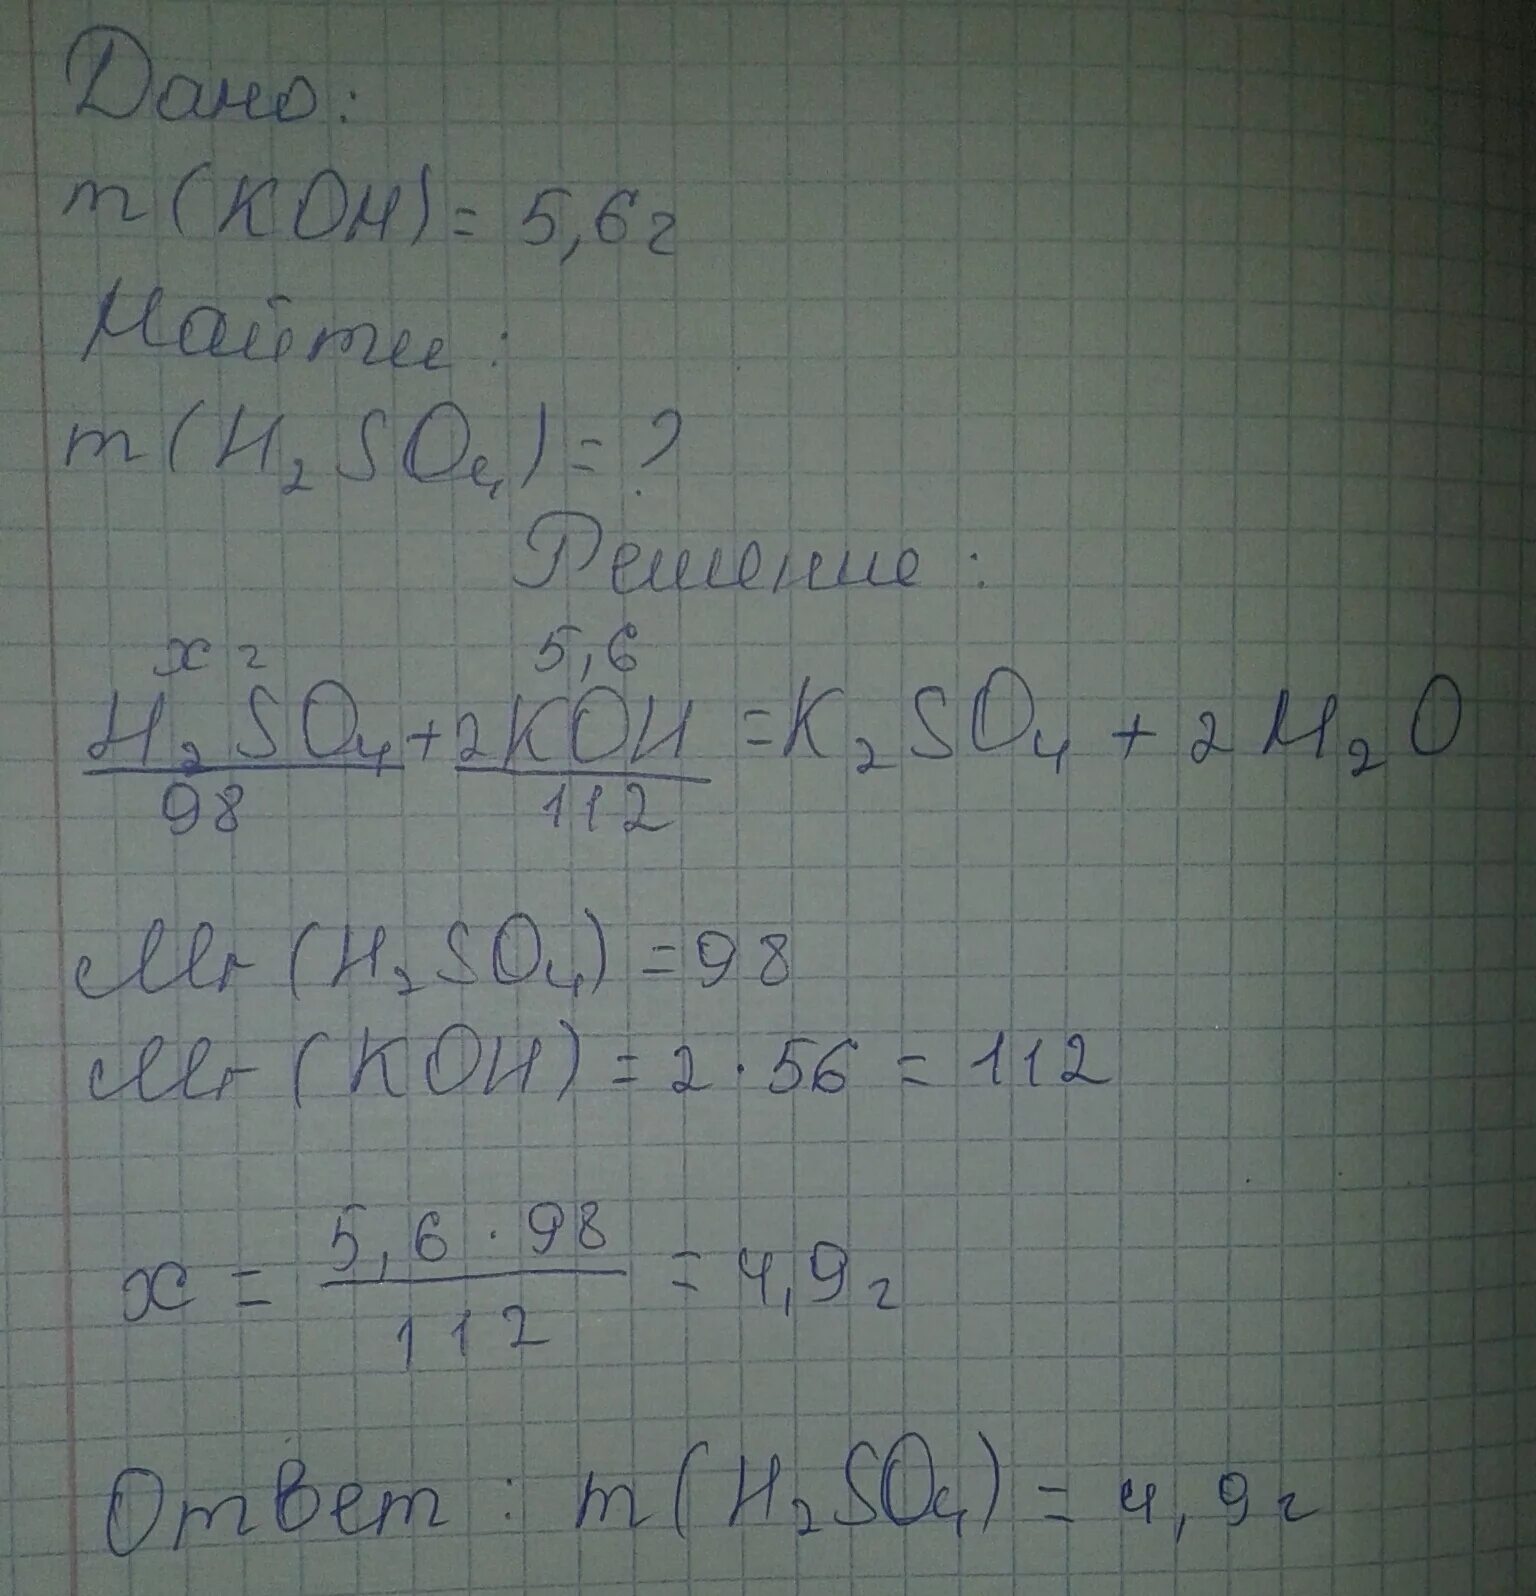 Дано:
m(KOH) = 5,6г
Найти:
m(H₂SO₄) = ?
Решение:
x г 5,6
H₂SO₄ + 2KOH = K₂SO₄ + 2H₂O
98 112
Mr (H₂SO₄) = 98
Mr (KOH) = 2 · 56 = 112
x = 5,6 · 98 / 112 = 4,9г
Ответ: m(H₂SO₄) = 4,9г